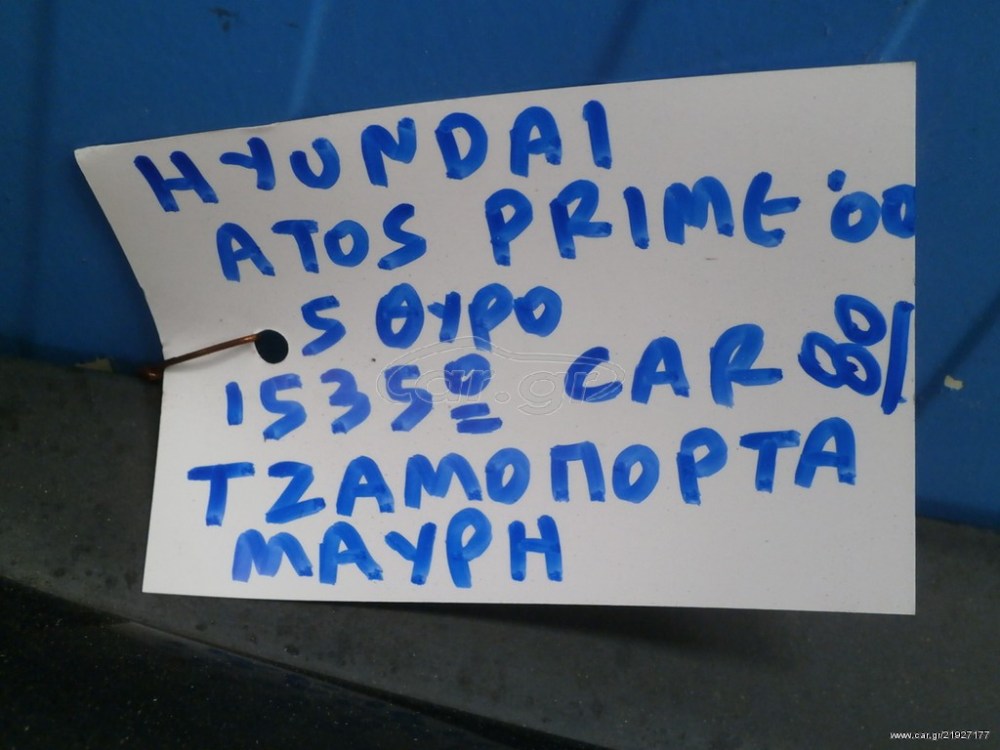 HYUNDAI
ATOS PRIME '00
5 ΘΥΡΟ
1535º CAR
ΤΖΑΜΟΠΟΡΤΑ
ΜΑΥΡΗ
car.gr
www.car.gr/21927177